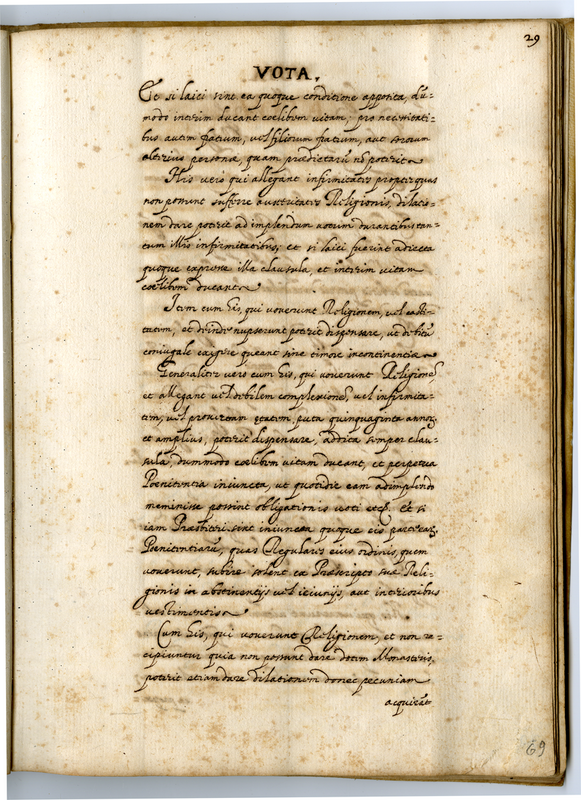 29
VOTA.
Et si laici sint ea quoque conditione apposita, dũ-
modo interim ducant coelibem vitam; pro necessitati-
bus autem fratrum, vel filiorum fratrum, aut sororum
alterius personæ, quam prædictarũ nõ poterit.
His vero qui allegant infirmitates propter quas
non possunt sufferre austeritates Religionis, dilatio-
nem dare poterit ad implendum votum durantibus tan-
tum illis infirmitatibus; et si laici fuerint adiecta
quoque expresse illa clausula, et interim vitam
coelibem ducant.
Item cum his, qui voverunt Religionem, vel casti-
tatem, et deinde nupserunt poterit dispensare, ut debitũ
coniugale exigere queant sine timore incontinentiæ.
Generaliter vero cum his, qui voverunt Religionẽ,
et allegant vel debilem complexionẽ, vel infirmita-
tem, vel provectam ætatem, puta quinquaginta annoꝝ
et amplius, poterit dispensare, addita semper clau-
sula, dummodo coelibem vitam ducant, et perpetua
Poenitentia iniuncta, ut quotidie eam adimplendo
meminisse possint obligationis voti etc. Et si
iam Præsbiteri sint iniuncta quoque eis parte aliq.
Poenitentiarũ, quas Regulares eius ordinis, quem
voverunt, subire solent ex Præscripto suæ Reli-
gionis in abstinentijs vel ieiunijs, aut interioribus
vestimentis.
Cum his, qui voverunt Religionem, et non re-
cipiuntur quia non possunt dare dotem Monasterijs,
poterit etiam dare dilationem donec pecuniam
acquirãt
69